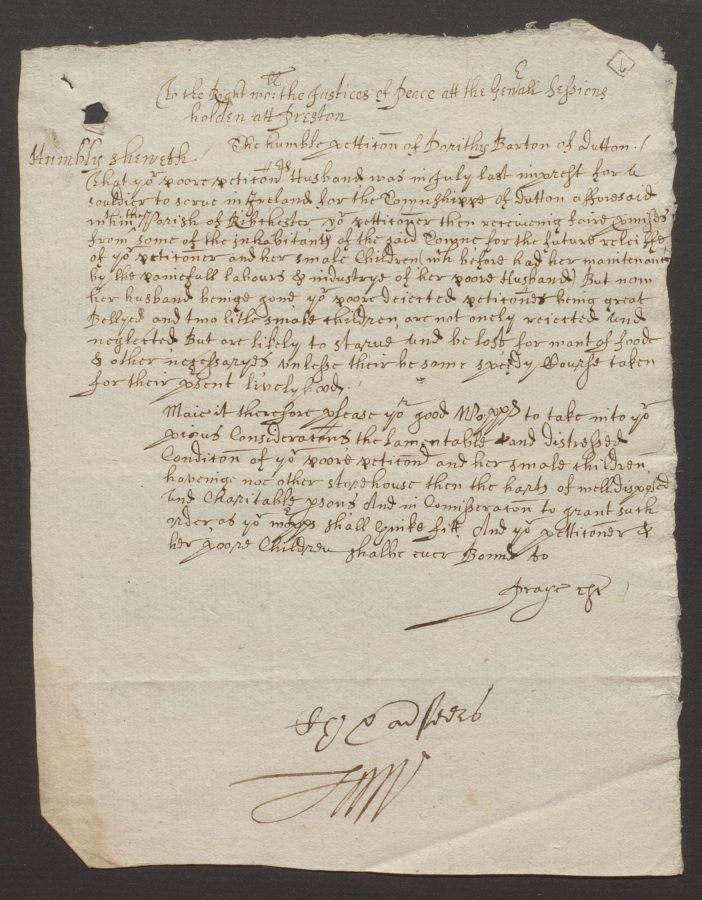 To the Right wor:ll the Justices of Peace att the Gen'all Sessions
holden att Preston
The humble petticon of Dorithy Barton of Dutton /
Humbly sheweth
That yor poore peticonrs Husband was in July last imprest for a
souldier to serue in Ireland for the Towneshippe of Dutton afforesaid
within the Parish of Ribchester yor pettitioner then receiueing faire p'mises
from some of the inhabitants of the said Towne for the future releiffe
of yor petitioner and her smale Children (wch before had her maintenance
by the painefull labours & industrye of her poore Husband) But now
her husband beinge gone yor poore deiected peticoner being great
Bellyed and two litle smale children are not onely reiected and
neglected But are likely to starue and be lost for want of foode
& other necessaryes vnlesse their be some speedy Course taken
for their p'sent livelyhood.
Maie it therefore please yor good Wopps to take into yor
pious Consideracons the lamentable and distressed
Condicon of yor poore peticonr and her smale children
haveinge noe other storehouse then the harts of well disposed
and Charitable p'sons And in Comisseracon to grant such
order as yor wopps shall thinke fitt And yor pettitioner &
her poore Children shalbe euer Bound to
Praye &c
ouerseers